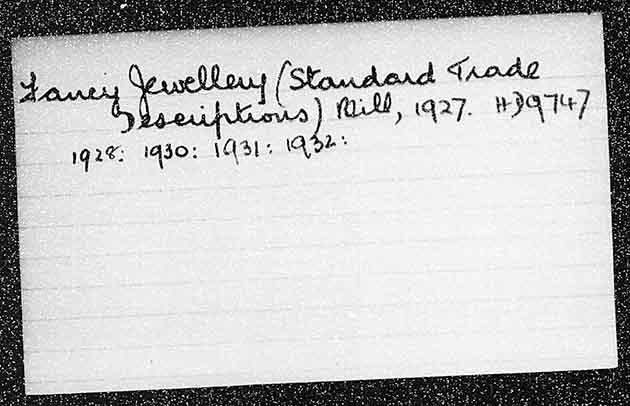 Fancy Jewellery (Standard Trade
Descriptions) Bill, 1927. HD9747
1928: 1930: 1931: 1932: